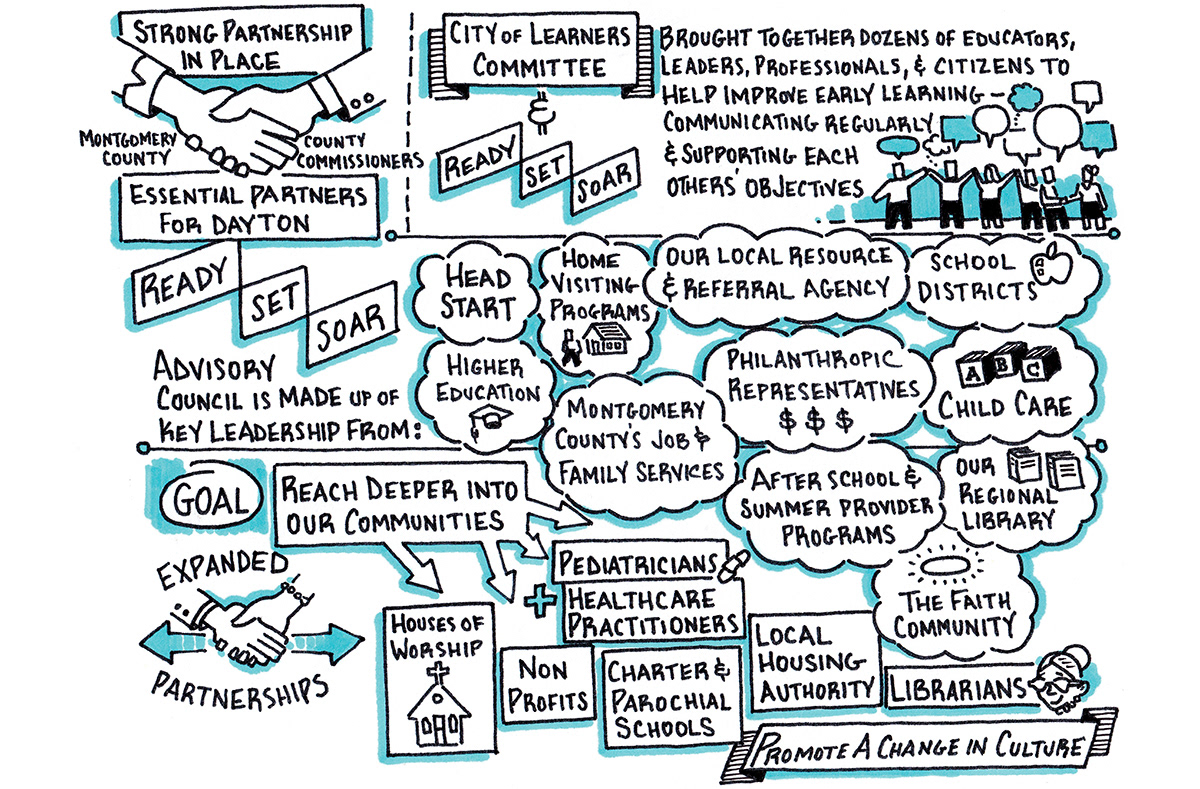 STRONG PARTNERSHIP
IN PLACE
MONTGOMERY
COUNTY
COUNTY
COMMISSIONERS
ESSENTIAL PARTNERS
FOR DAYTON
READY
SET
SOAR
CITY OF LEARNERS
COMMITTEE
&
READY
SET
SOAR
BROUGHT TOGETHER DOZENS OF EDUCATORS,
LEADERS, PROFESSIONALS, & CITIZENS TO
HELP IMPROVE EARLY LEARNING —
COMMUNICATING REGULARLY
& SUPPORTING EACH
OTHERS' OBJECTIVES
ADVISORY
COUNCIL IS MADE UP OF
KEY LEADERSHIP FROM:
HEAD
START
HOME
VISITING
PROGRAMS
OUR LOCAL RESOURCE
& REFERRAL AGENCY
SCHOOL
DISTRICTS
HIGHER
EDUCATION
MONTGOMERY
COUNTY'S JOB &
FAMILY SERVICES
PHILANTHROPIC
REPRESENTATIVES
$ $ $
A B C
CHILD CARE
AFTER SCHOOL &
SUMMER PROVIDER
PROGRAMS
OUR
REGIONAL
LIBRARY
THE FAITH
COMMUNITY
GOAL
REACH DEEPER INTO
OUR COMMUNITIES
EXPANDED
PARTNERSHIPS
HOUSES OF
WORSHIP
NON
PROFITS
+
PEDIATRICIANS
HEALTHCARE
PRACTITIONERS
CHARTER &
PAROCHIAL
SCHOOLS
LOCAL
HOUSING
AUTHORITY
LIBRARIANS
PROMOTE A CHANGE IN CULTURE